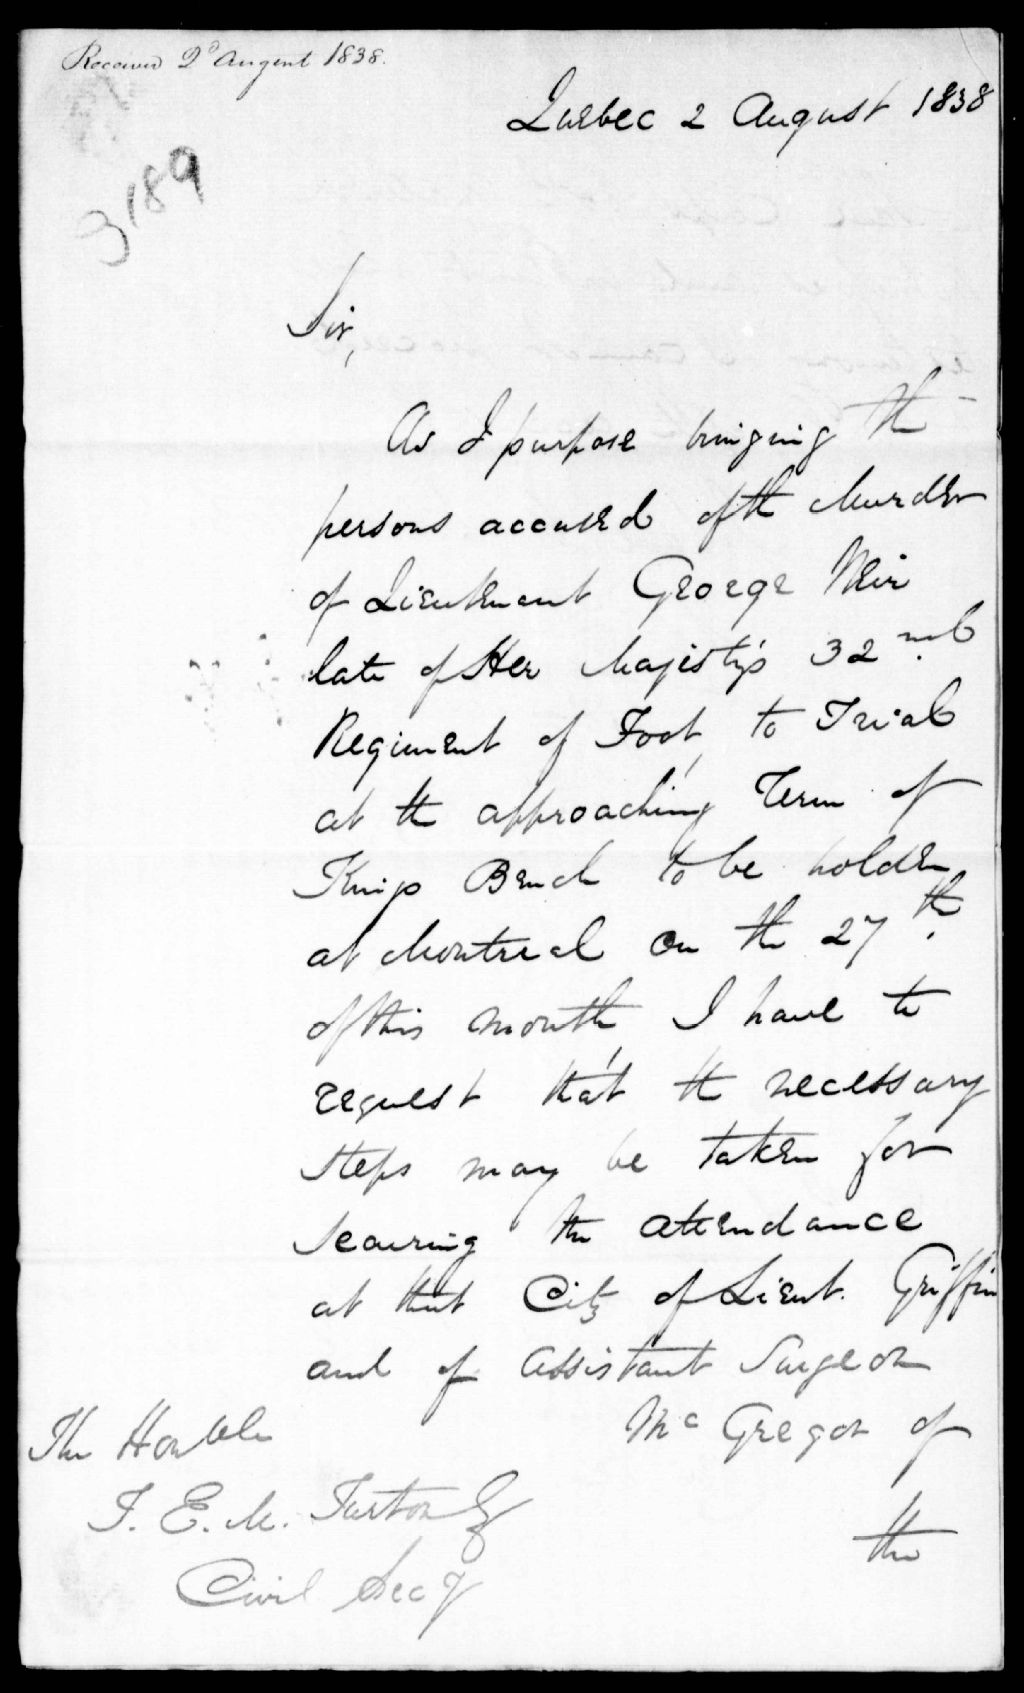 Received 2d August 1838.
Quebec 2 August 1838
3189
Sir,
As I purpose bringing the
persons accused of the Murder
of Lieutenant George Weir
late of Her Majesty's 32nd.
Regiment of Foot, to Trial
at the approaching Term of
Kings Bench to be holden
at Montreal on the 27th.
of this month, I have to
request that the necessary
steps may be taken for
securing the attendance
at that City of Lieut. Griffin
and of Assistant Surgeon
McGregor of
The Honble
T. E. M. Turton Esq
Civil Secy
the